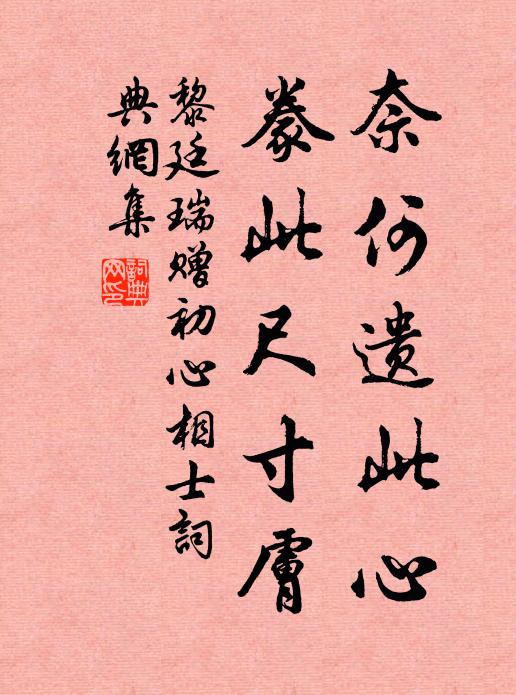 奈何遗此心
豢此尺寸膚
黎廷瑞赠初心相士詞
典網集
詞典網印